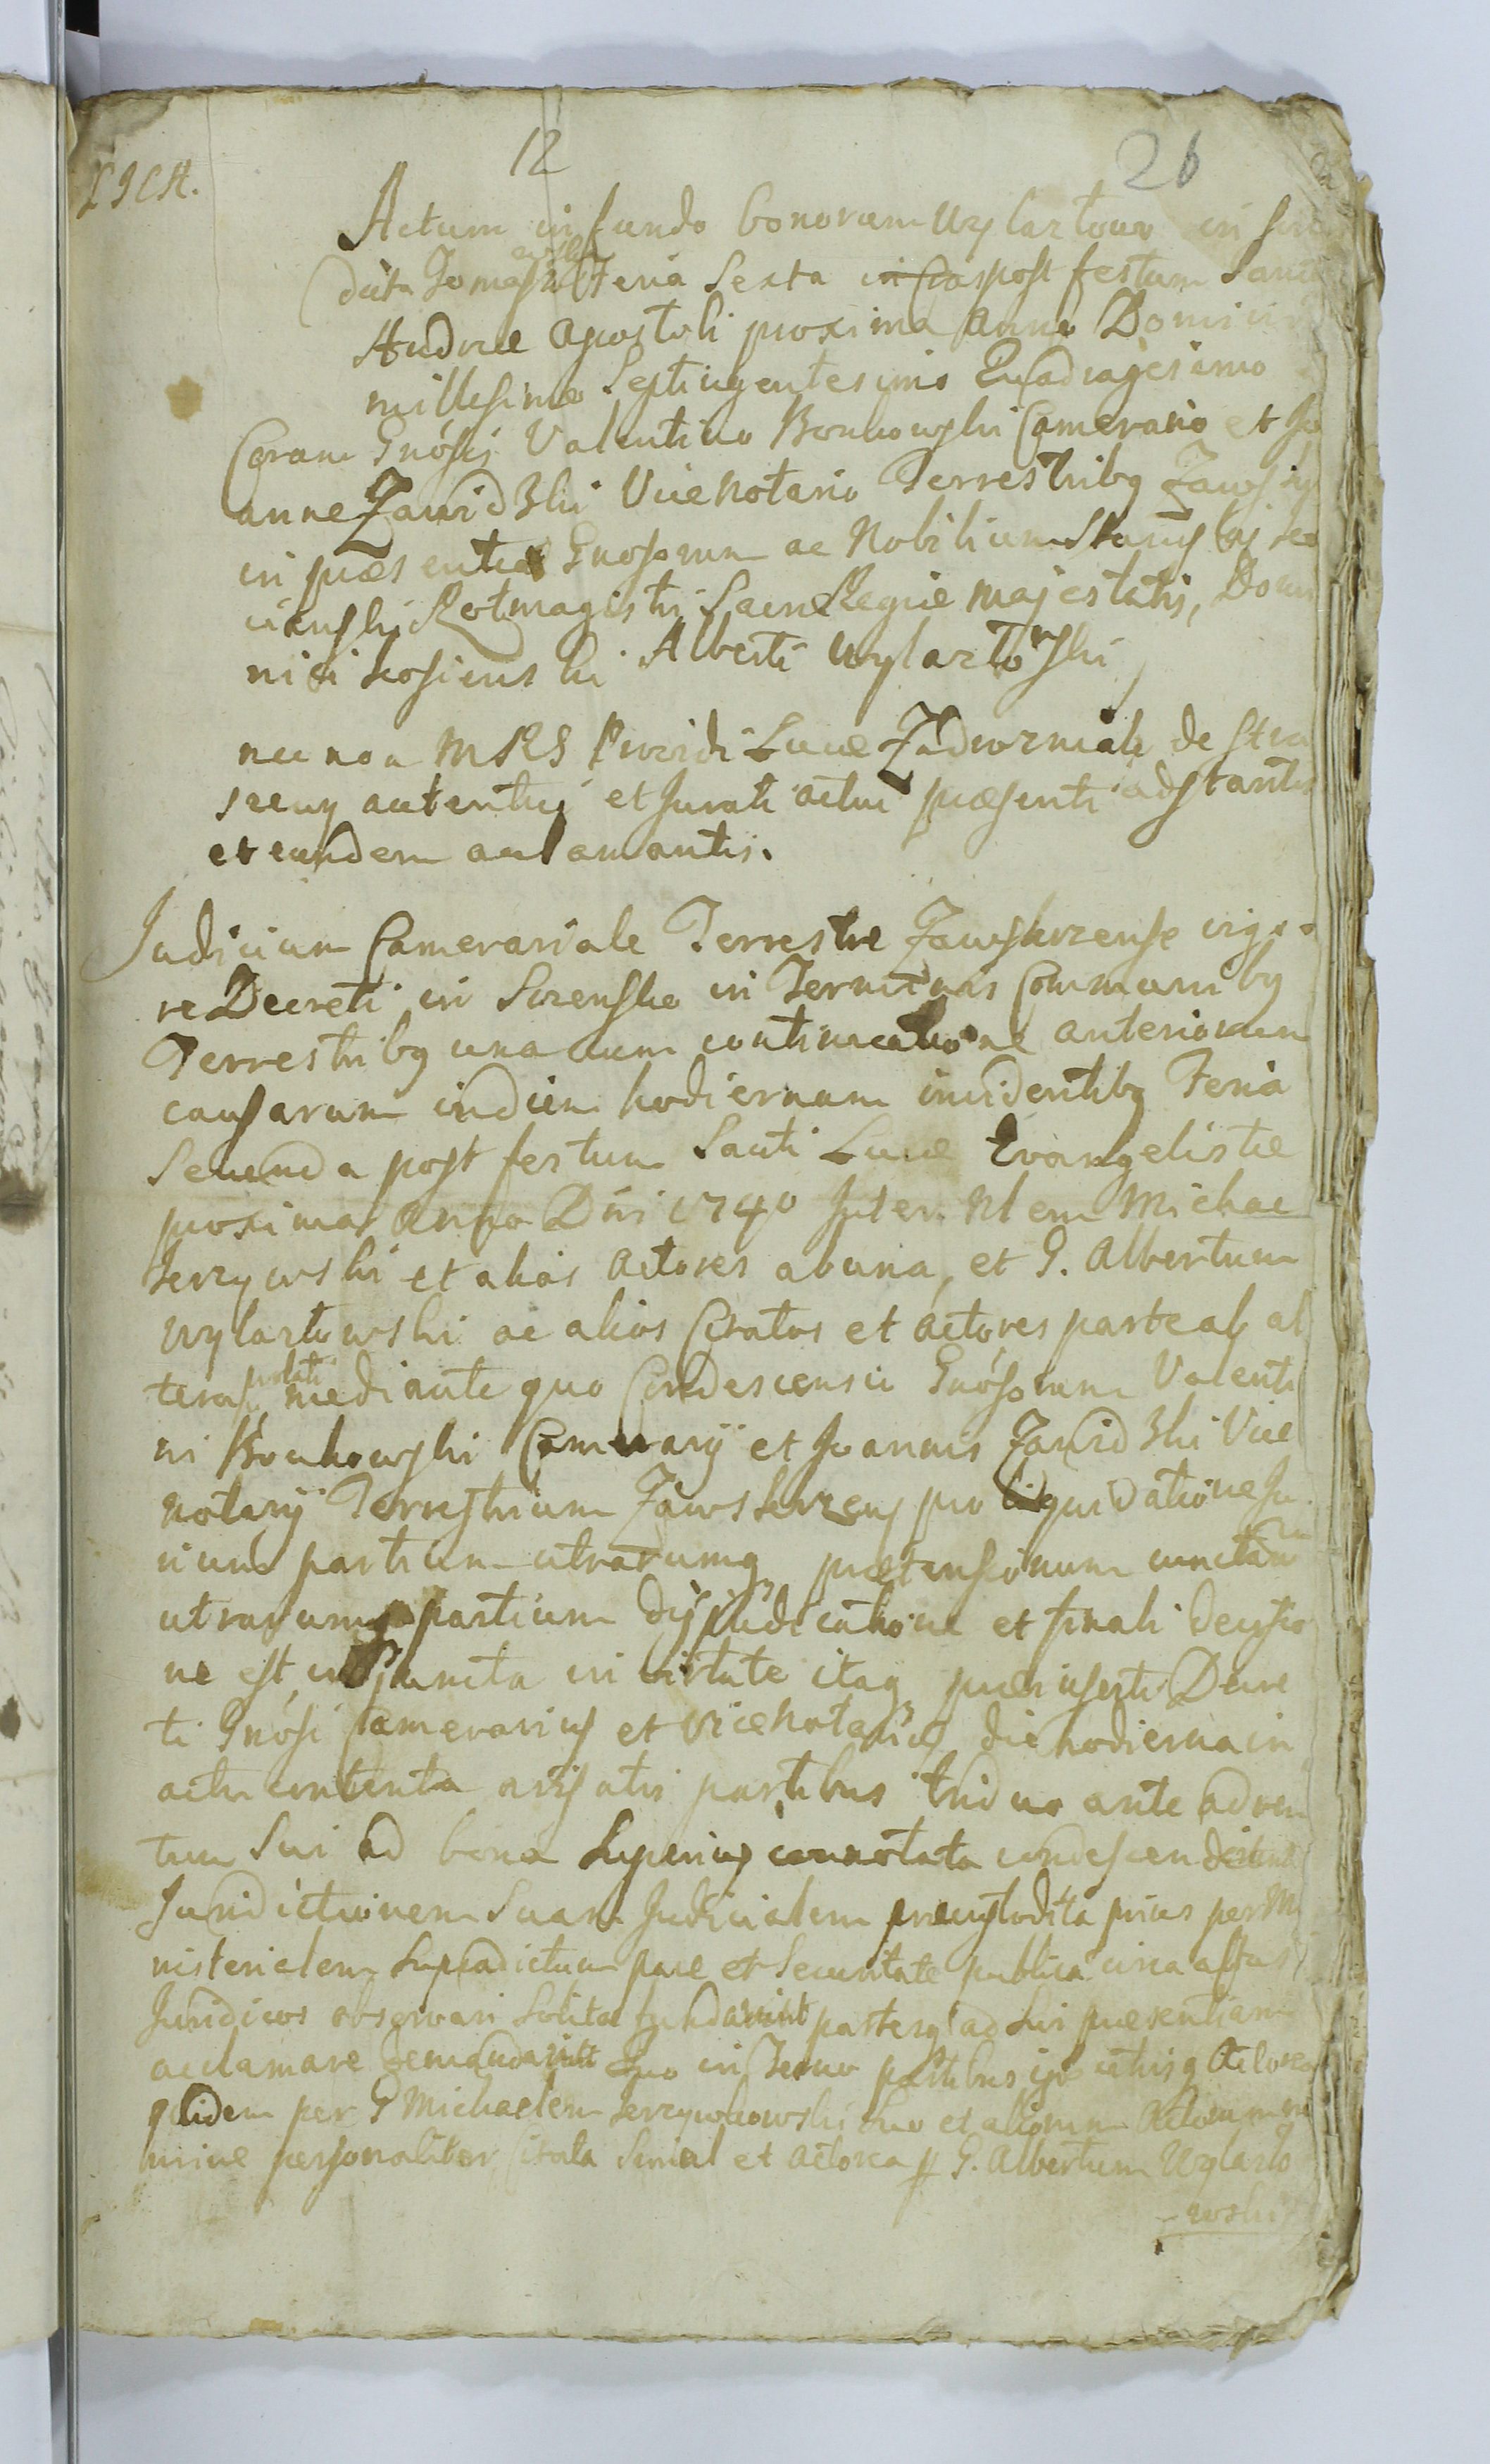 12
26
Actum in fundo bonorum Wylazlowo in
dicta Feria Sexta post festum Sancti
Andreæ Apostoli proxima Anno Domini
millesimo Septingentesimo Quadragesimo
Coram Gnosis Valentino Bonkowski Camerario et Jo
anne Zawidzki Vicenotario Terrestribg
in præsentia Gnosorum ac Nobilium
Rotmagistri Sacræ Regiæ Majestatis, Domi
nici Kosinski Alberti Wylazłowski
nec non MRS Providi Lucæ de Stra
autentici et Jurati actui præsenti adstantis
et eundem aclamantis.
Judicium Camerariale Terrestre Zawskrzense vigo
re Decreti in Szrensko in Terminis Communibg
Terrestribg una cum continuatione anteriorum
causarum in diem hodiernum incidentibg Feria
Secunda post festum Santi Lucæ Evangelistæ
proxima Anno Dni 1740 Inter Nlem Michae
et alios Actores ab una, et G. Albertum
Wylazlowski ac alios Citatos et Actores parte ab al
tera prolati mediante quo Condescensu Gnosorum Valenti
ni Bonkowski Camerarij et Joannis Zawidzki Vice
notarij Terrestrium Zawskrzens pro liquidatione Ju
rium partium utrarumq prætensionum
utrarumq partium dijudicatione et finali Decisio
ne est in virtute itaq præinserti Decre
ti Gnosi Camerarius et Vicenotarius die hodierna in
actu contenta avisatis partibus triduo ante adven
tum Sui ad bona Superius connotata
Jurisdictionem Suam Judicialem prius per Mi
nisterialem Supradictum pace et Securitate publica circa
Juridicos observari Solita fundarunt partesq ad Sui præsentiam
acclamare demandarunt Quo in Termo partibus utrisq Actorea
quidem per G Michaelem Suo et aliorum Actorum no
mine personaliter Citata Simul et Actorea G. Albertum Wylazlo
wski